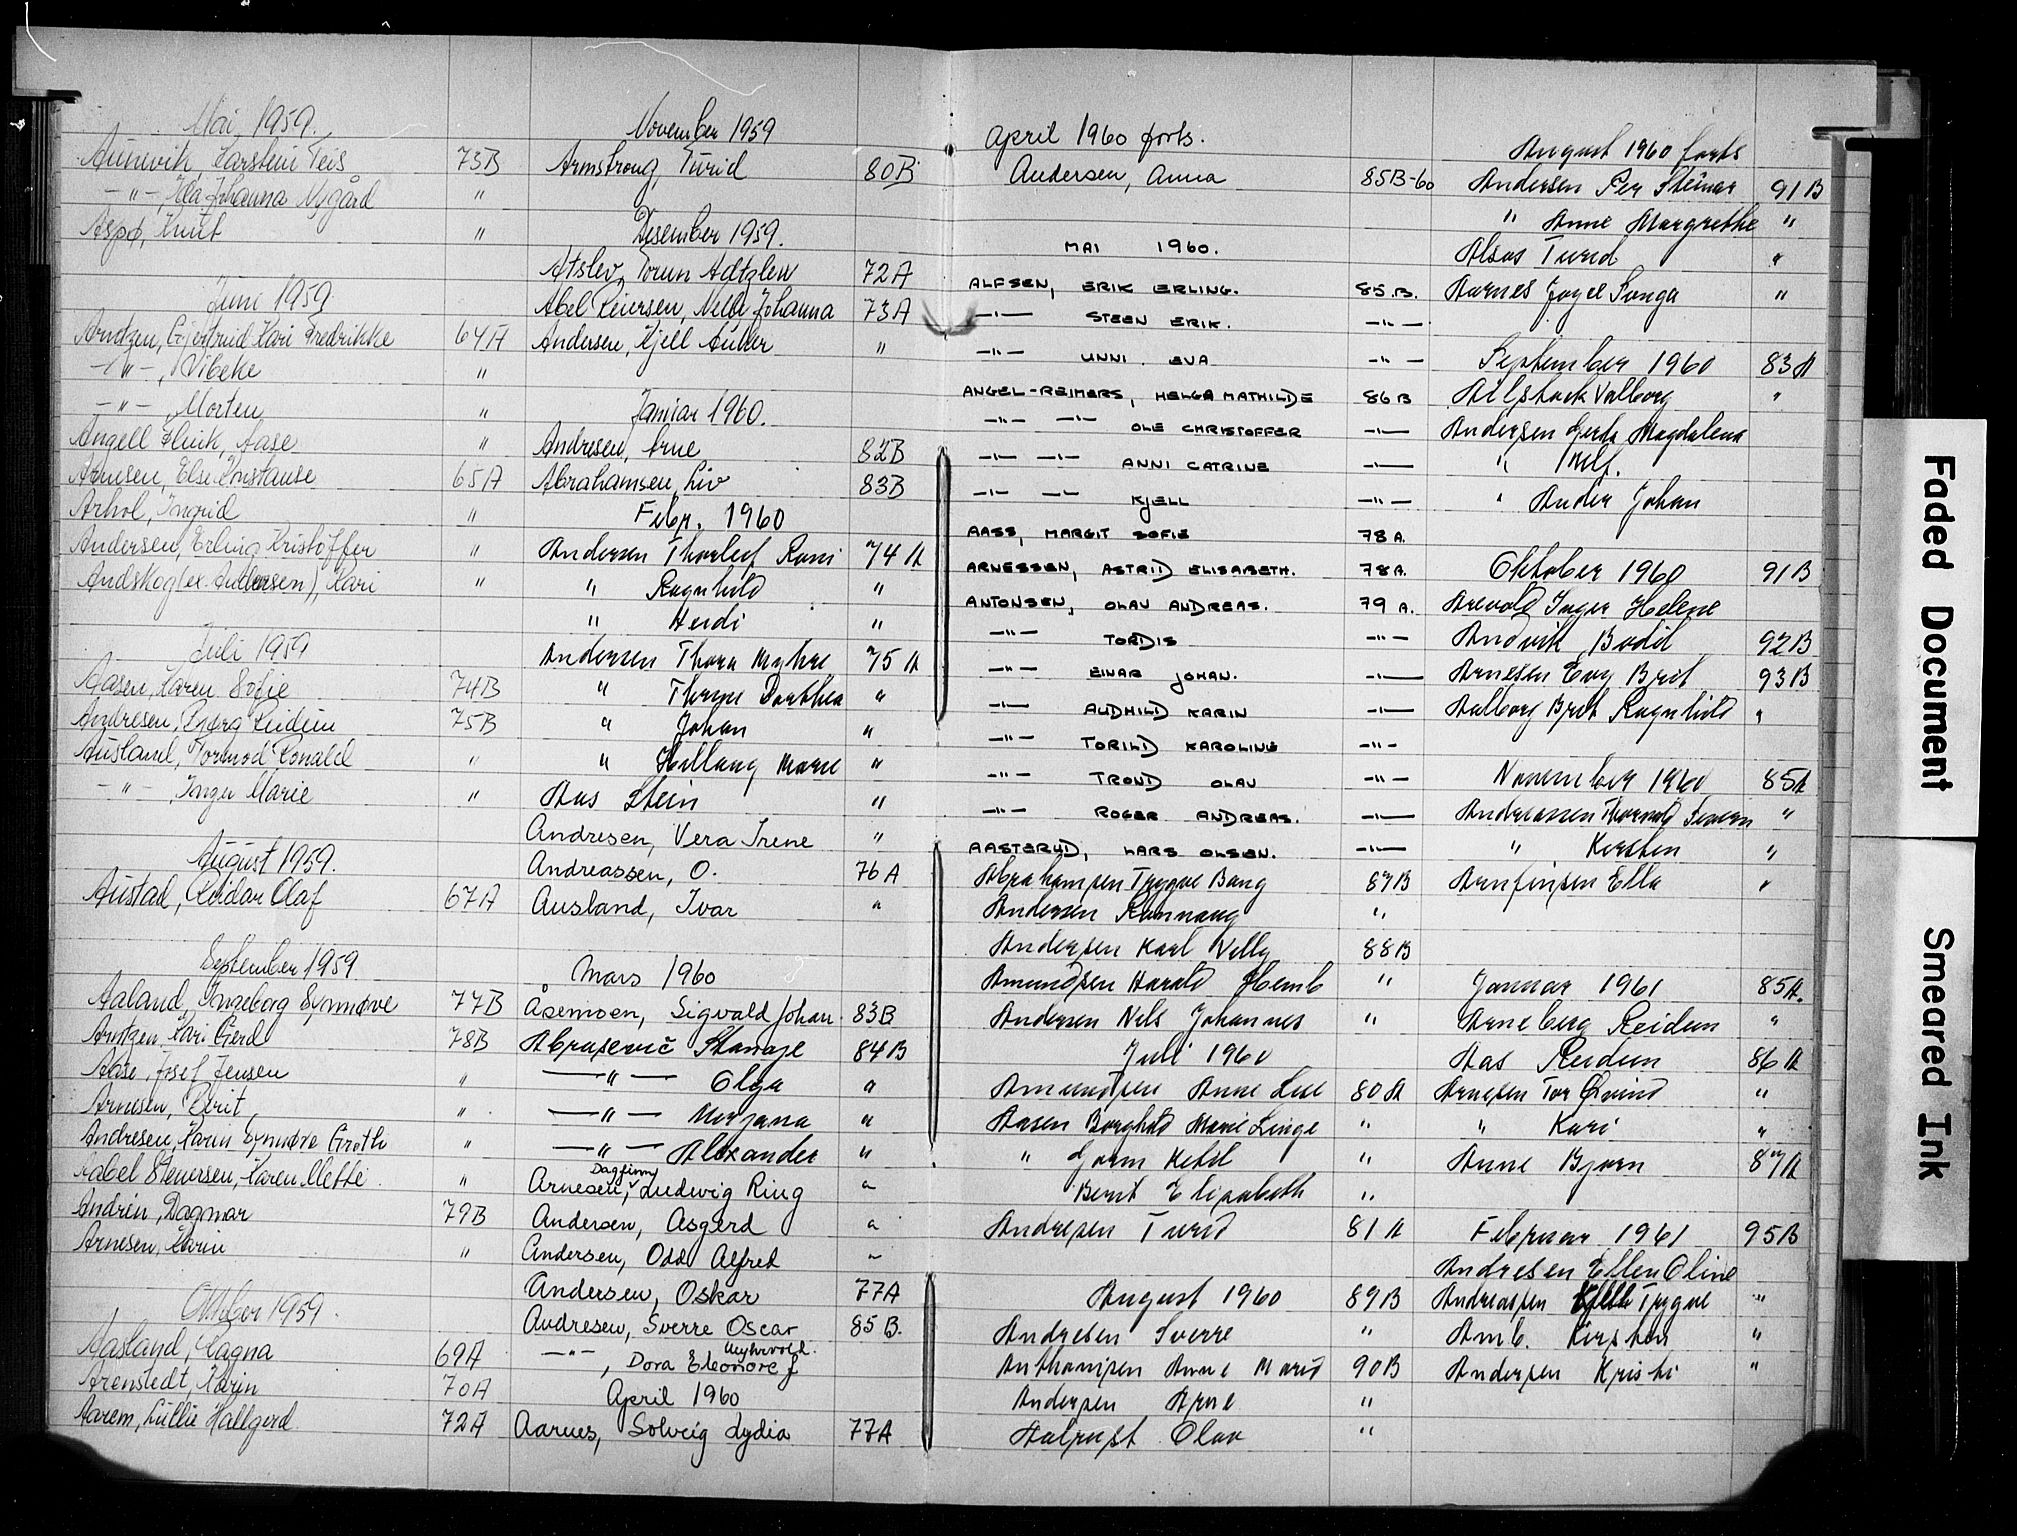 Mai 1959.
Aunevik, Karstein Teis 73B
-"-, Ida Johanna Nygård "
Aspø, Knut "
Juni 1959
Arntzen, Gjertrud Kari Fredrikke 64A
-"-, Vibeke "
-"-, Morten "
Angell Aase "
Arnesen, Else Konstanse 65A
Arhol, Ingrid "
Andersen, Erling Kristoffer "
Andskog (ex. Andersen), Kari "
Juli 1959
Aasen, Karen Sofie 74B
Andresen, Bjørg Reidun 75B
Ausland, Tormod Ronald "
-"-, Inger Marie "
August 1959.
Austad, Reidar Olaf 67A
September 1959
Aaland, Ingeborg Synnøve 77B
Arntzen, Kari Gerd 78B
Aase, Josef Jensen "
Arnesen, Berit "
Andresen, Karin Synnøve Groth "
Aabel Stenersen, Karen Mette "
Andrén, Dagmar 79B
Arnesen, Karin "
Oktober 1959.
Aasland, Ragna 69A
Arenstedt, Karin 70A
Aarem, Lullie Hallgerd 72A
November 1959
Armstrong, Turid 80B
Desember 1959.
Atslev, Torun 72A
Abel Johanna 73A
Andersen, Kjell "
Januar 1960.
Andresen, Arne 82B
Abrahamsen, Liv 83B
Febr. 1960
Andersen Thorleif 74 A
" Ragnhild "
" Heidi "
Andersen Thora Myhre 75 A
" Dorthea "
" Johan "
" Marie "
Aas Stein "
Andresen, Vera Irene "
Andreassen, O. 76 A
Ausland, Ivar "
Mars 1960
Åsemoen, Sigvald Johan 83B
Abrasevič Stanoje 84B
—"— Olga "
—"— Morjana "
—"— Alexander "
Dagfinn
Arnesen, Ludwig Ring "
Andersen, Asgerd "
Andersen, Odd Alfred "
Andersen, Oskar 77A
Andresen, Sverre Oscar 85 B.
-"-, Dora Eleonore f
April 1960
Aarnes, Solveig Lydia 77A
April 1960 forts.
Andersen, Anna 85B-60
MAI 1960.
ALFSEN, ERIK ERLING. 85.B.
—"— STEEN ERIK. —"—
—"— UNNI. EVA —"—
ANGEL-REIMERS, HELGA MATHILDE 86B
—"— —"— OLE CHRISTOFFER —"—
—"— —"— ANNI CATRINE —"—
—"— —"— KJELL —"—
AASS, MARGIT SOFIE 78 A.
ARNESSEN, ASTRID ELISABETH. 78A.
ANTONSEN, OLAV ANDREAS. 79 A.
—"— TORDIS —"—
—"— EINAR JOHAN. —"—
—"— AUDHILD KARIN —"—
—"— TORILD KAROLINE —"—
—"— TROND OLAV —"—
—"— ROGER ANDREAS. —"—
AASTERUD, LARS OLSEN. —"—
Abrahamsen Trygve Bang 87B
Andersen Rannaug "
Andersen Karl Villy 88B
Amundsen Harald "
Andersen Nils Johannes "
Juli 1960
Amundsen Anne Lise 80 A
Aasen Borghild Marie Linge "
" Gorm Ketil "
Berit Elisabeth "
Andresen Turid 81 A
August 1960 89B
Andresen Sverre "
Anthonisen Anne Marie 90B
Andersen Arne "
Olav "
August 1960 forts
Andersen Per Steinar 91B
" Anne Margrethe "
Alsos Turid "
Aarnes Sonja "
September 1960 83 A
Valborg "
Andersen Gerda Magdalena
" Rolf.
" Ander Johan
Oktober 1960 91B
Arevold Inger Helene
Andvik Bodil 92B
Arnesen Evy Brit 93B
Aalborg Brit Ragnhild "
November 1960 85A
Andreassen Thorvald "
" Kirsten "
Arnfinsen Ella "
Januar 1961 85A.
Arneberg Reidun "
Aas Reidun 86 A
Arnesen Tor Øivind "
" Kari "
Anne Bjørn 87A
Februar 1961 95B
Andresen Ellen Oline
Andreassen Trygve "
Amb. Kirsten "
Andersen Kristi "
Faded Document
Smeared Ink